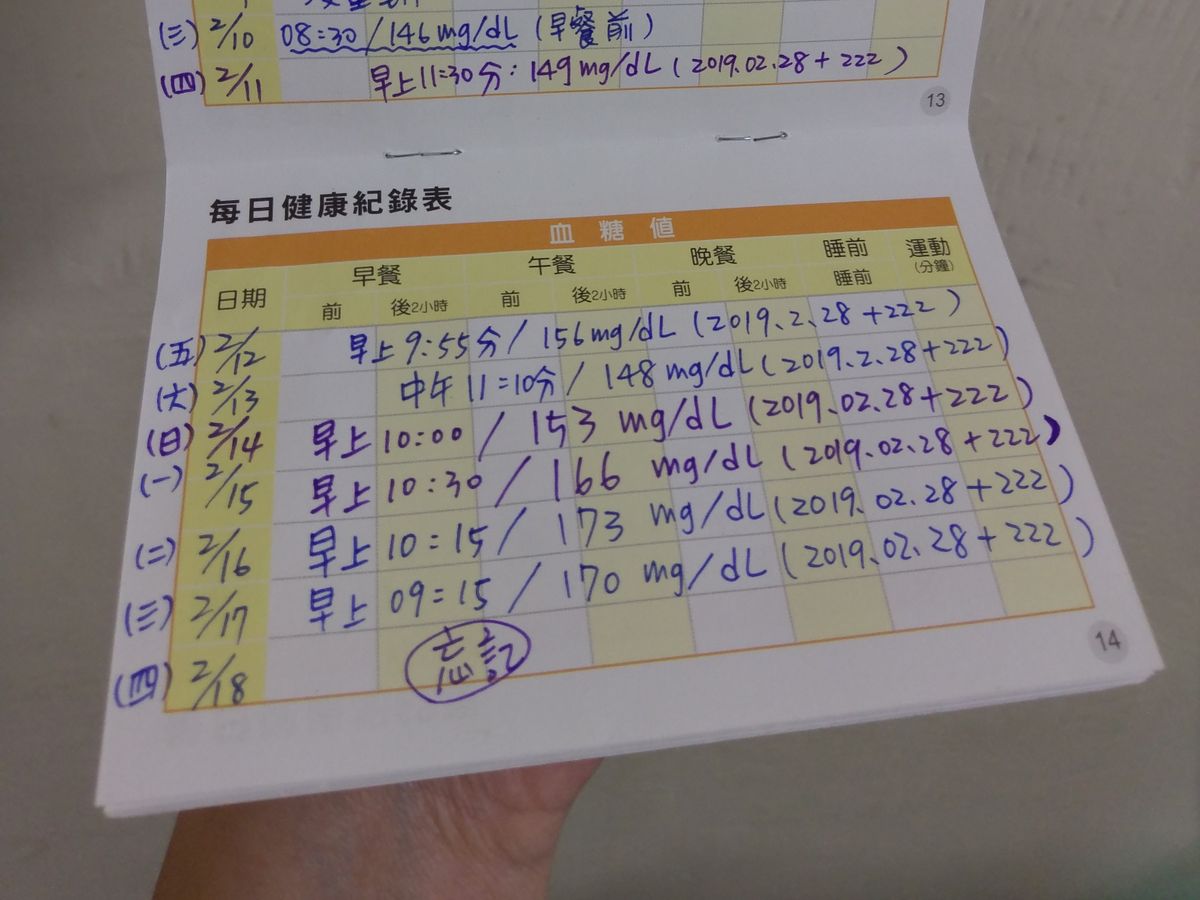 (三) 2/10 08:30/146mg/dL (早餐前)
(四) 2/11 早上11:30分:149mg/dL(2019.02.28+222)
13
每日健康紀錄表
血糖值
日期 早餐 午餐 晚餐 睡前 運動(分鐘)
前 後2小時 前 後2小時 前 後2小時 睡前
(五) 2/12 早上9:55分/156mg/dL(2019.2.28+222)
(六) 2/13 中午11:10分/148mg/dL(2019.2.28+222)
(日) 2/14 早上10:00/153mg/dL(2019.02.28+222)
(一) 2/15 早上10:30/166mg/dL(2019.02.28+222)
(二) 2/16 早上10:15/173mg/dL(2019.02.28+222)
(三) 2/17 早上09:15/170mg/dL(2019.02.28+222)
(四) 2/18 忘記
14